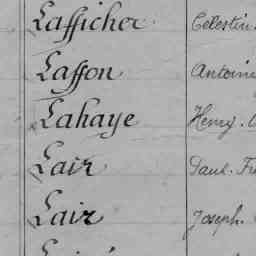 Lafficher Célestin.
Laffon Antoine
Lahaye Henry.
Lair Paul.
Lair Joseph.